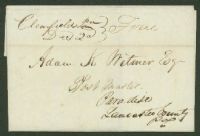 Clearfield Pa } Free
Dec 2d
Adam K. Witmer Esq
Post Master
Paradise
Lancaster County
Pa